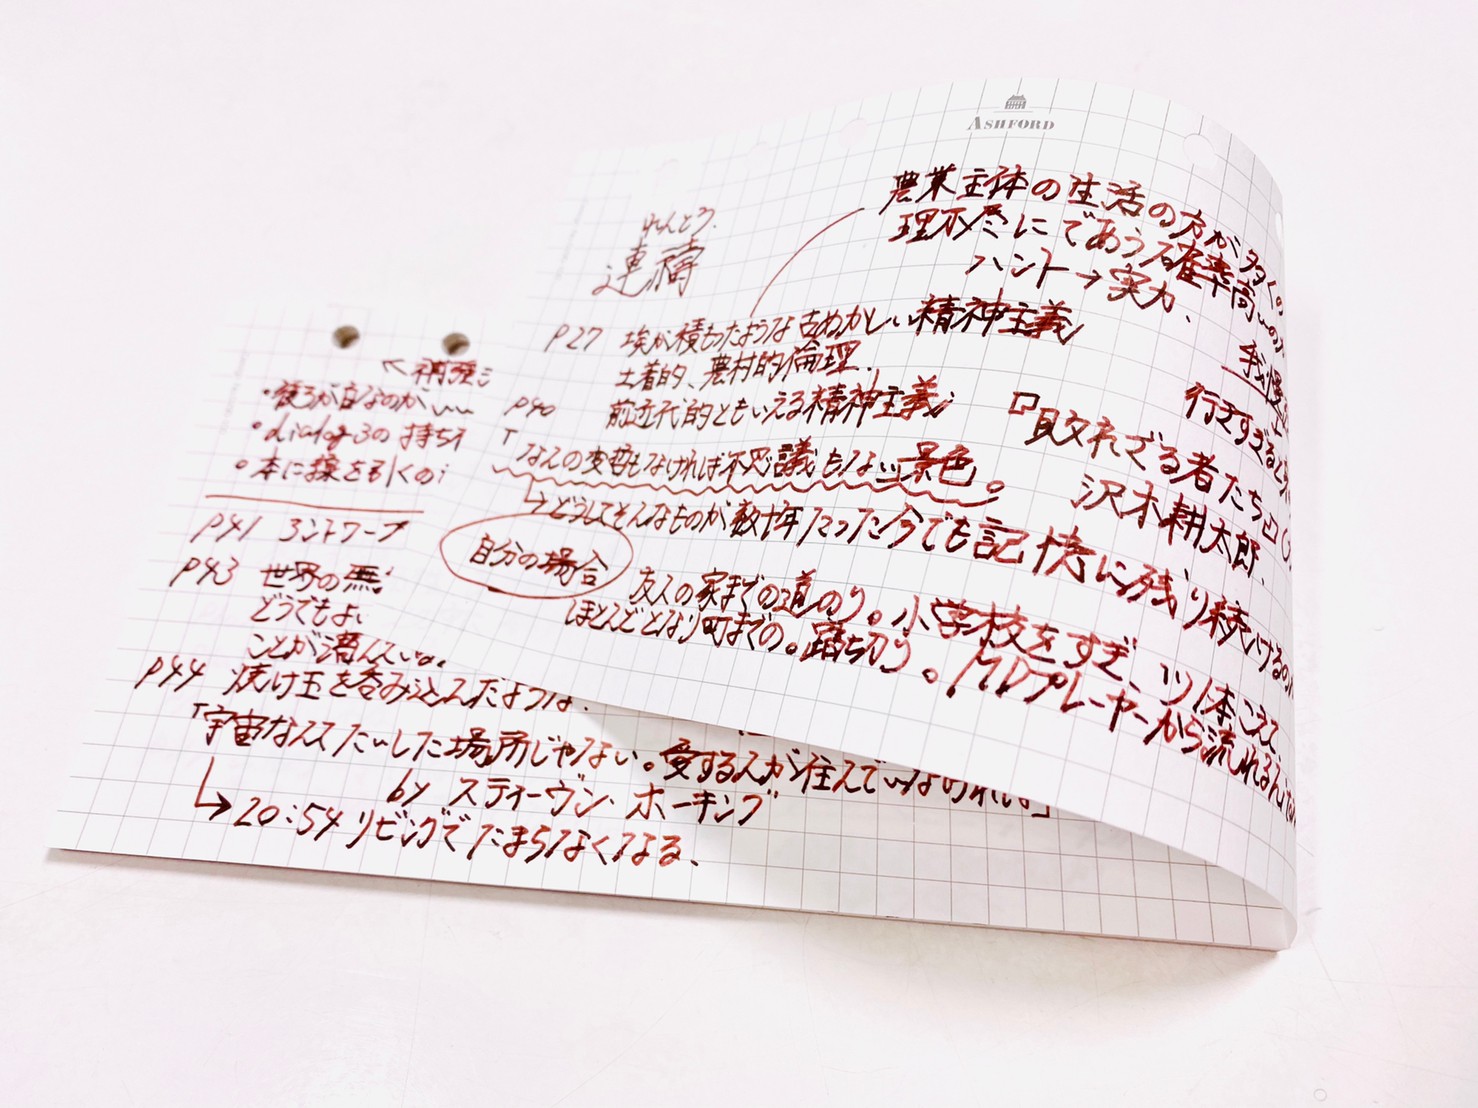 ASHFORD
農業主体の生活の方が多くの
理不尽にであう確率高いの
ハント→実力、
れんとう
連祷
P27 埃が積もったような古めかしい精神主義
土着的、農村的倫理、
我慢
行きすぎると
P40 前近代的ともいえる精神主義
『敗れざる者たち』
沢木耕太郎、
「なんの変哲もなければ不思議もない景色。
→どうしてそんなものが数十年たった今でも記憶に残り続けるの
自分の場合
友人の家までの道のり。小学校をすぎ、1本こえて
ほとんどとなり町までの。踏切り。MDプレーヤーから流れる
←補強
・後ろが盲なのが
・dialog3の持ち
・本に線を引くの
P41
P43 世界の無
どうでもよ
ことが潜んでいる。
P44 焼け玉を呑み込んだような、
「宇宙なんてたいした場所じゃない。愛する人が住んでいなければ」
by スティーヴン・ホーキング
→20:54 リビングでたまらなくなる、